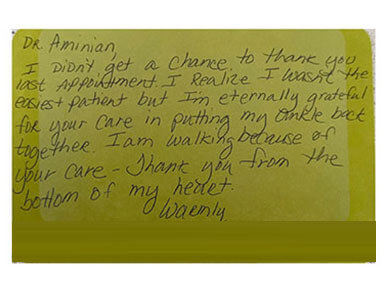 DR. Aminian,
I Didn't get a Chance to thank you
last appointment. I Realize I wasn't the
easiest patient but I'm eternally grateful
for your care in putting my ankle back
together. I am walking because of
your care - Thank you from the
bottom of my heart.
Warmly